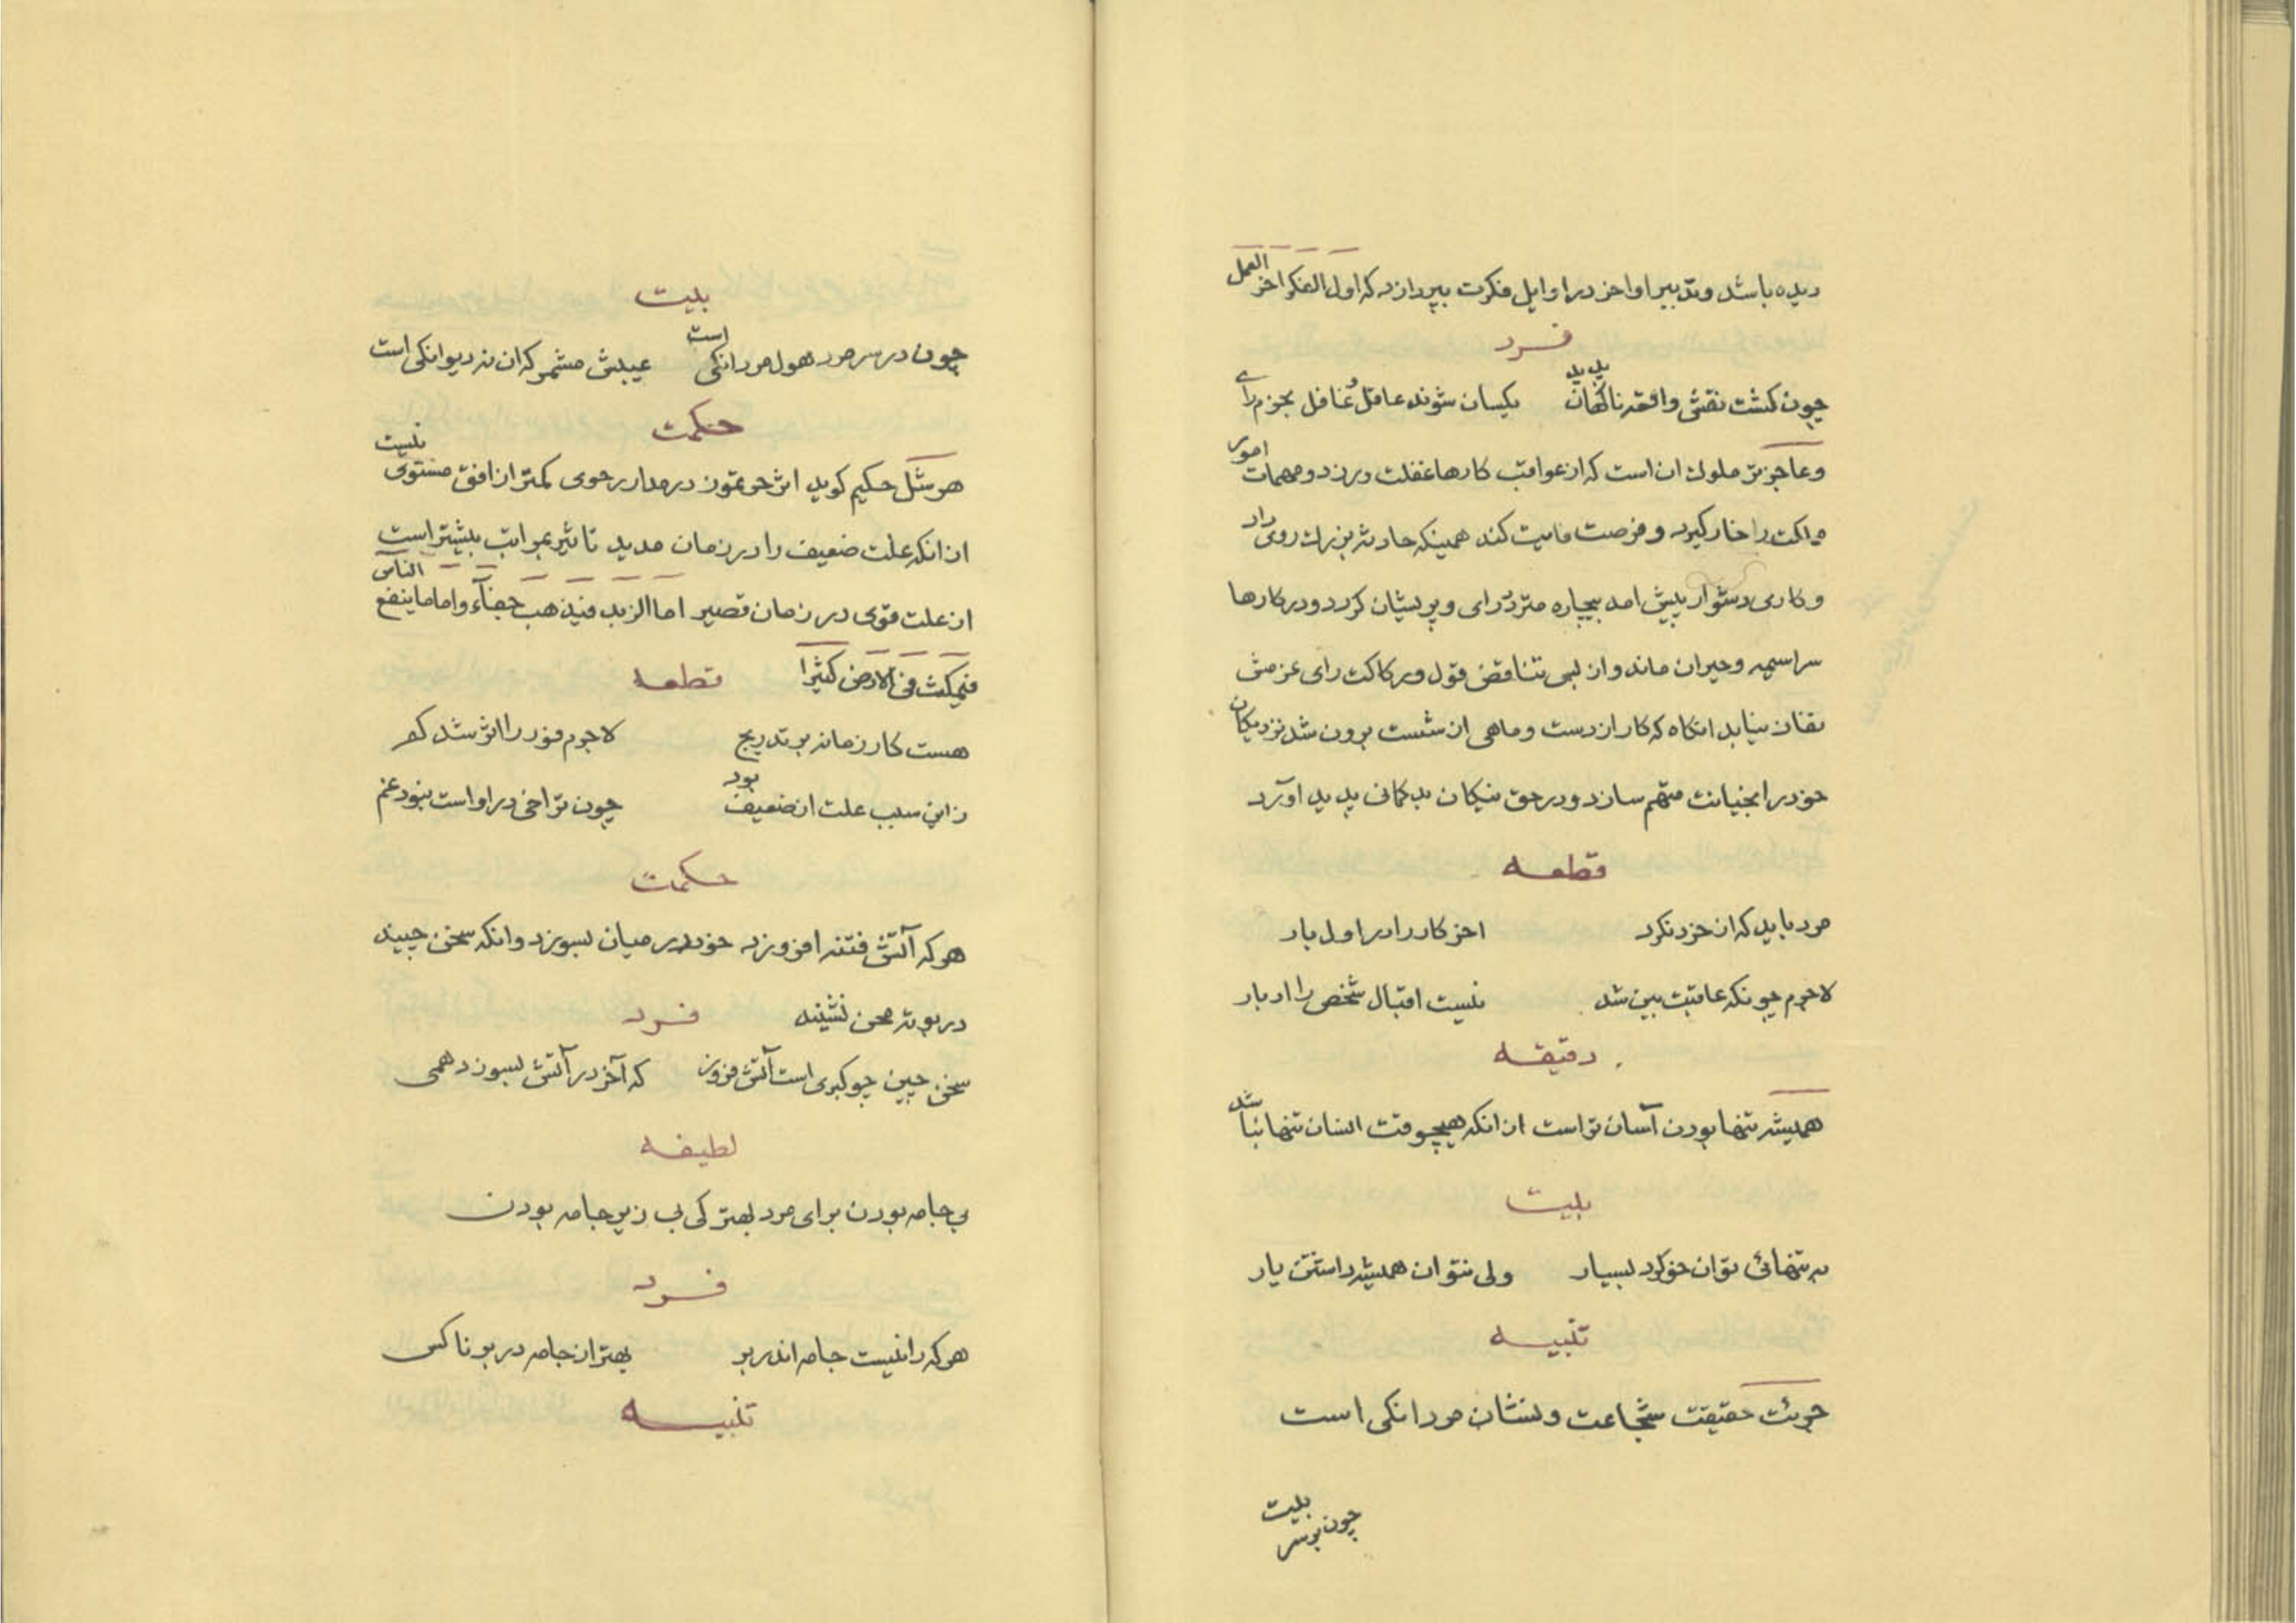 دیده باشد و تدبیر اواخر در اوایل فکرت بپردازد که اول الفکر اخر العمل
فرد
چون کشت نقش واقعه ناکهان پدید یکسان شوند عاقل و غافل بجزم رای
و عاجزتر ملوک ان است که از عواقب کارها غفلت ورزد و مهمات امور
ملکت را خار گیرد و فرصت فایت کند همینکه حادثه بزرک روی داد
و کاری دشوار پیش امد بیچاره متردد رای و پریشان کردد و در کارها
سراسیمه و حیران ماند و از پی تناقض قول و رکاکت رای عزمش
نفاذ نیابد انکاه که کار از دست و ماهی از شست برون شد نزدیکان
خود را بخیانت متهم سازد و در حق نیکان بد کمانی پدید اورد
قطعه
مرد باید که از خرد نکرد اخر کار را در اول بار
لاجرم چونکه عاقبت بین شد نیست اقبال شخص را ادبار
دقیقه
همیشه تنها بودن آسان تر است از انکه هیچوقت انسان تنها نباشد
بیت
به تنهائی توان خو کرد بسیار ولی نتوان همیشه داشتن یار
تنبیه
جرئت حقیقت شجاعت و نشان مردانکی است
بیت
چون بر سر
بیت
چون در سر مرد هول مردانکی است عیبش مشمر که ان نه دیوانکی است
حکمت
هرشل حکیم کوید اثر حر تموز در مدار رجوی کمتر از افق مستوی نیست
از انکه علت ضعیف را در زمان مدید تاثیر بمراتب بیشتر است
از علت قوی در زمان قصیر اما الزبد فیذهب جفآء و اما ما ینفع الناس
فیمکث فی الارض کثیرا قطعه
هست کار زمانه بر تدریج لاجرم فور را اثر شد کم
زاین سبب علت ار ضعیف بود چون تراخی در او است نبود غم
حکمت
هر که آتش فتنه افروزد خود در میان بسوزد و انکه سخن چیند
در بوته محن نشیند فرد
سخن چین چو کبری است آتش فروز که آخر در آتش بسوزد همی
لطیفه
بی جامه بودن برای مرد بهتر کی بی زیر جامه بودن
فرد
هر که را نیست جامه اندر بر بهتر از جامه در بر ناکس
تنبیه